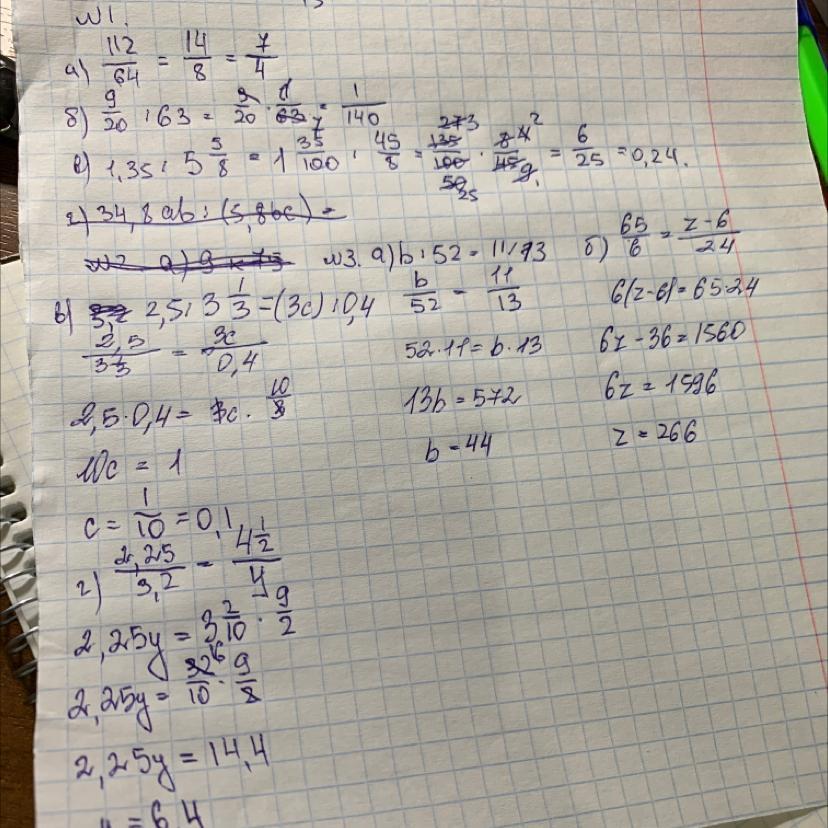 №1.
а) 112/64 = 14/8 = 7/4
б) 9/20 : 63 = 9/20 · 1/63 7 = 1/140
в) 1,35 : 5 5/8 = 1 35/100 : 45/8 = 27 3 135/100 50 25 · 8 4 2/45 9 1 = 6/25 = 0,24.
г) 34,8ab : (5,8bc) =
№2 а) 9 × 75
№3. а) b : 52 = 11/13
b/52 = 11/13
52·11 = b·13
13b = 572
b = 44
б) 65/6 = z-6/24
6(z-6) = 65·24
6z - 36 = 1560
6z = 1596
z = 266
в) 2,5 : 3 1/3 = (3c) : 0,4
2,5/3 1/3 = 3c/0,4
2,5·0,4 = 3c · 10/3
10c = 1
c = 1/10 = 0,1
г) 2,25/3,2 = 4 1/2/y
2,25y = 3 2/10 · 9/2
2,25y = 32 16/10 · 9/2
2,25y = 14,4
y = 6,4